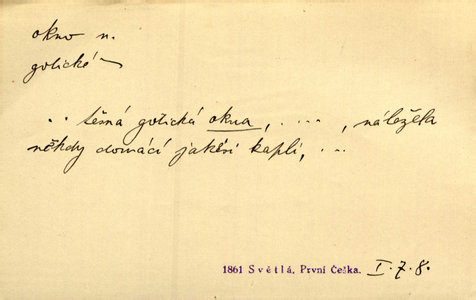 okno n.
gotické ~
.. těsná gotická okna, . ... , náležela
někdy domácí jakési kapli, ...
1861 Světlá, První Češka. I. 7. 8.